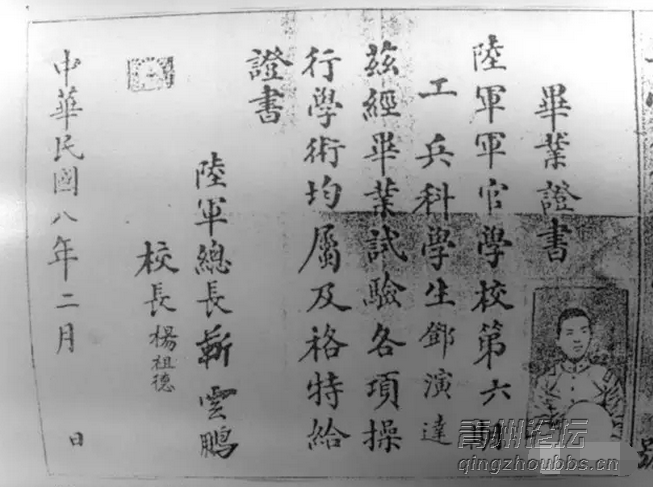 畢業證書
陸軍軍官學校第六期
工兵科學生鄧演達
茲經畢業試驗各項操
行學術均屬及格特給
證書
陸軍總長靳雲鵬
校長楊祖德
中華民國八年二月 日
號
青州论坛
qingzhoubbs.cn